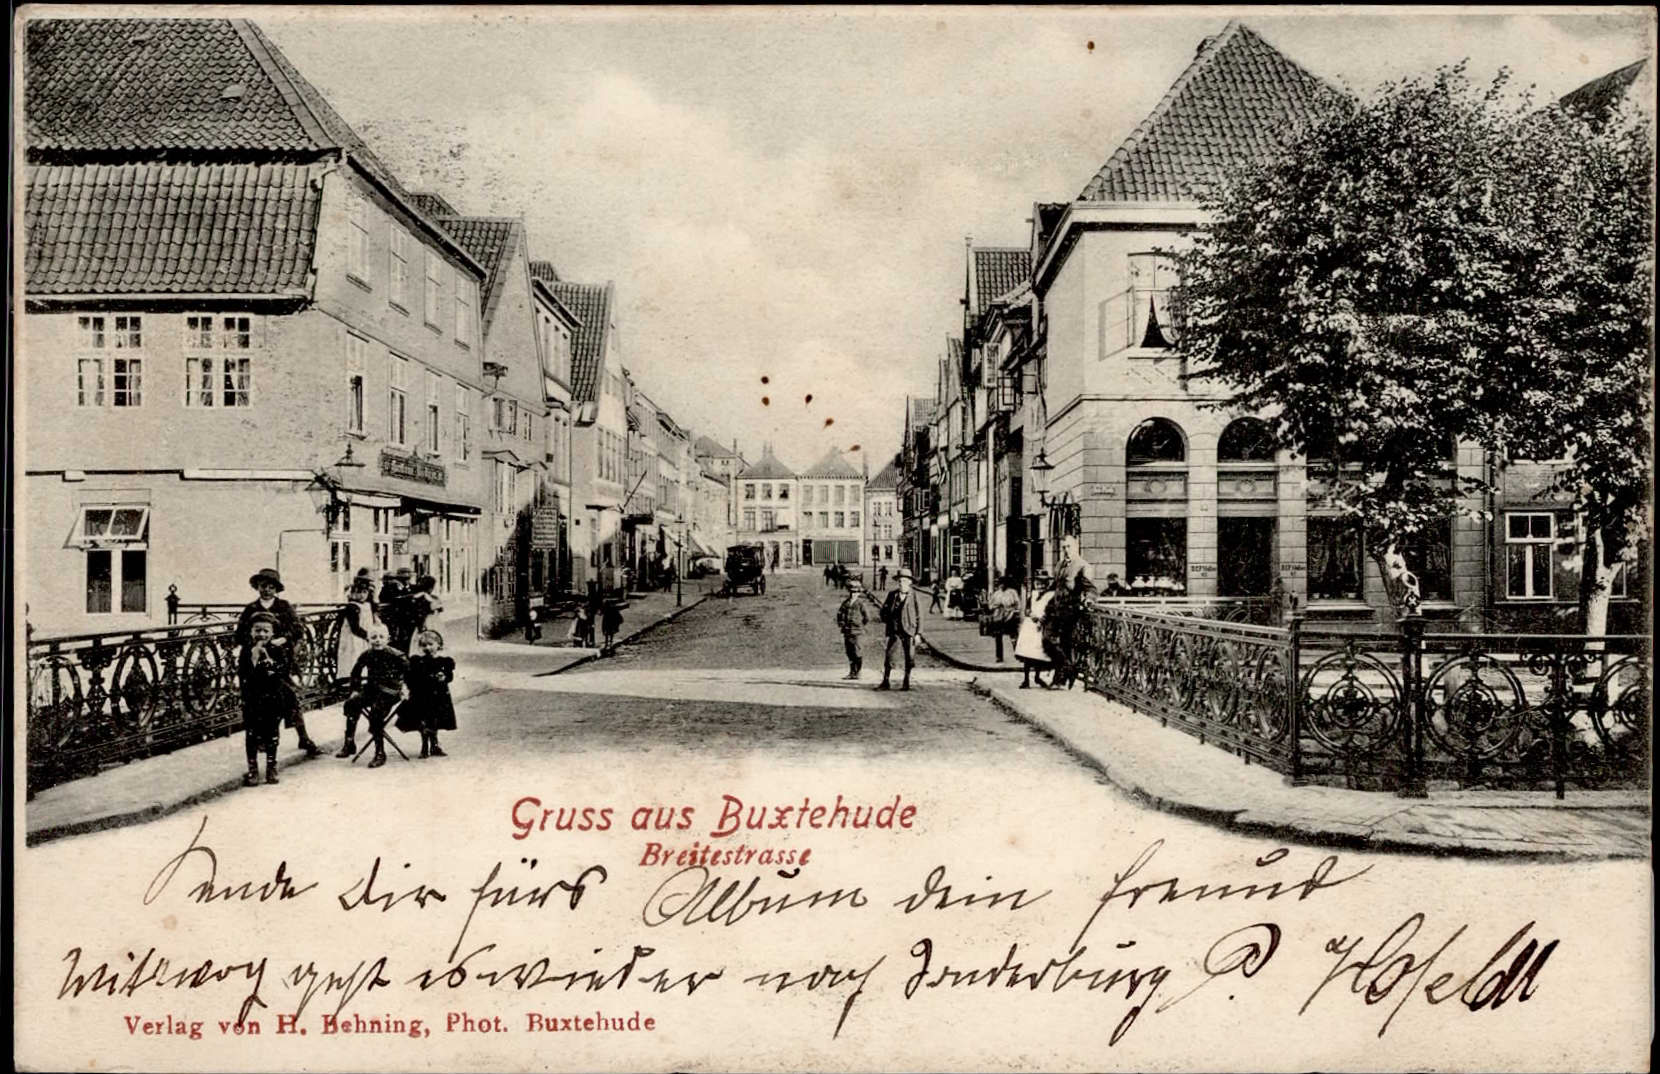 Gruss aus Buxtehude
Breitestrasse
Sende dir fürs Album dein freund
Mittwoch geht es wieder nach Sonderburg P.
Verlag von H. Behning, Phot. Buxtehude